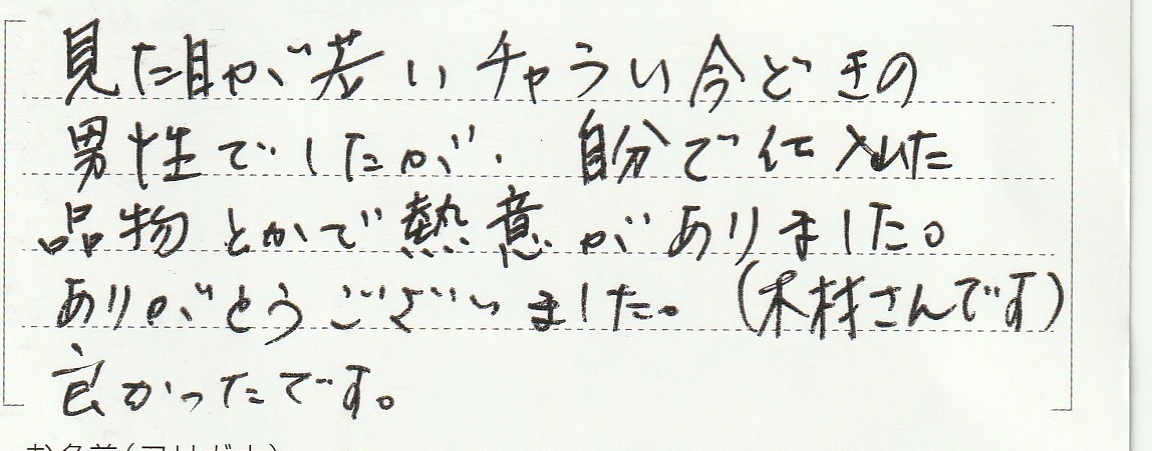 見た目が若いチャラい今どきの
男性でしたが、自分で仕入れた
品物とかで熱意がありました。
ありがとうございました。(木材さんです)
良かったです。